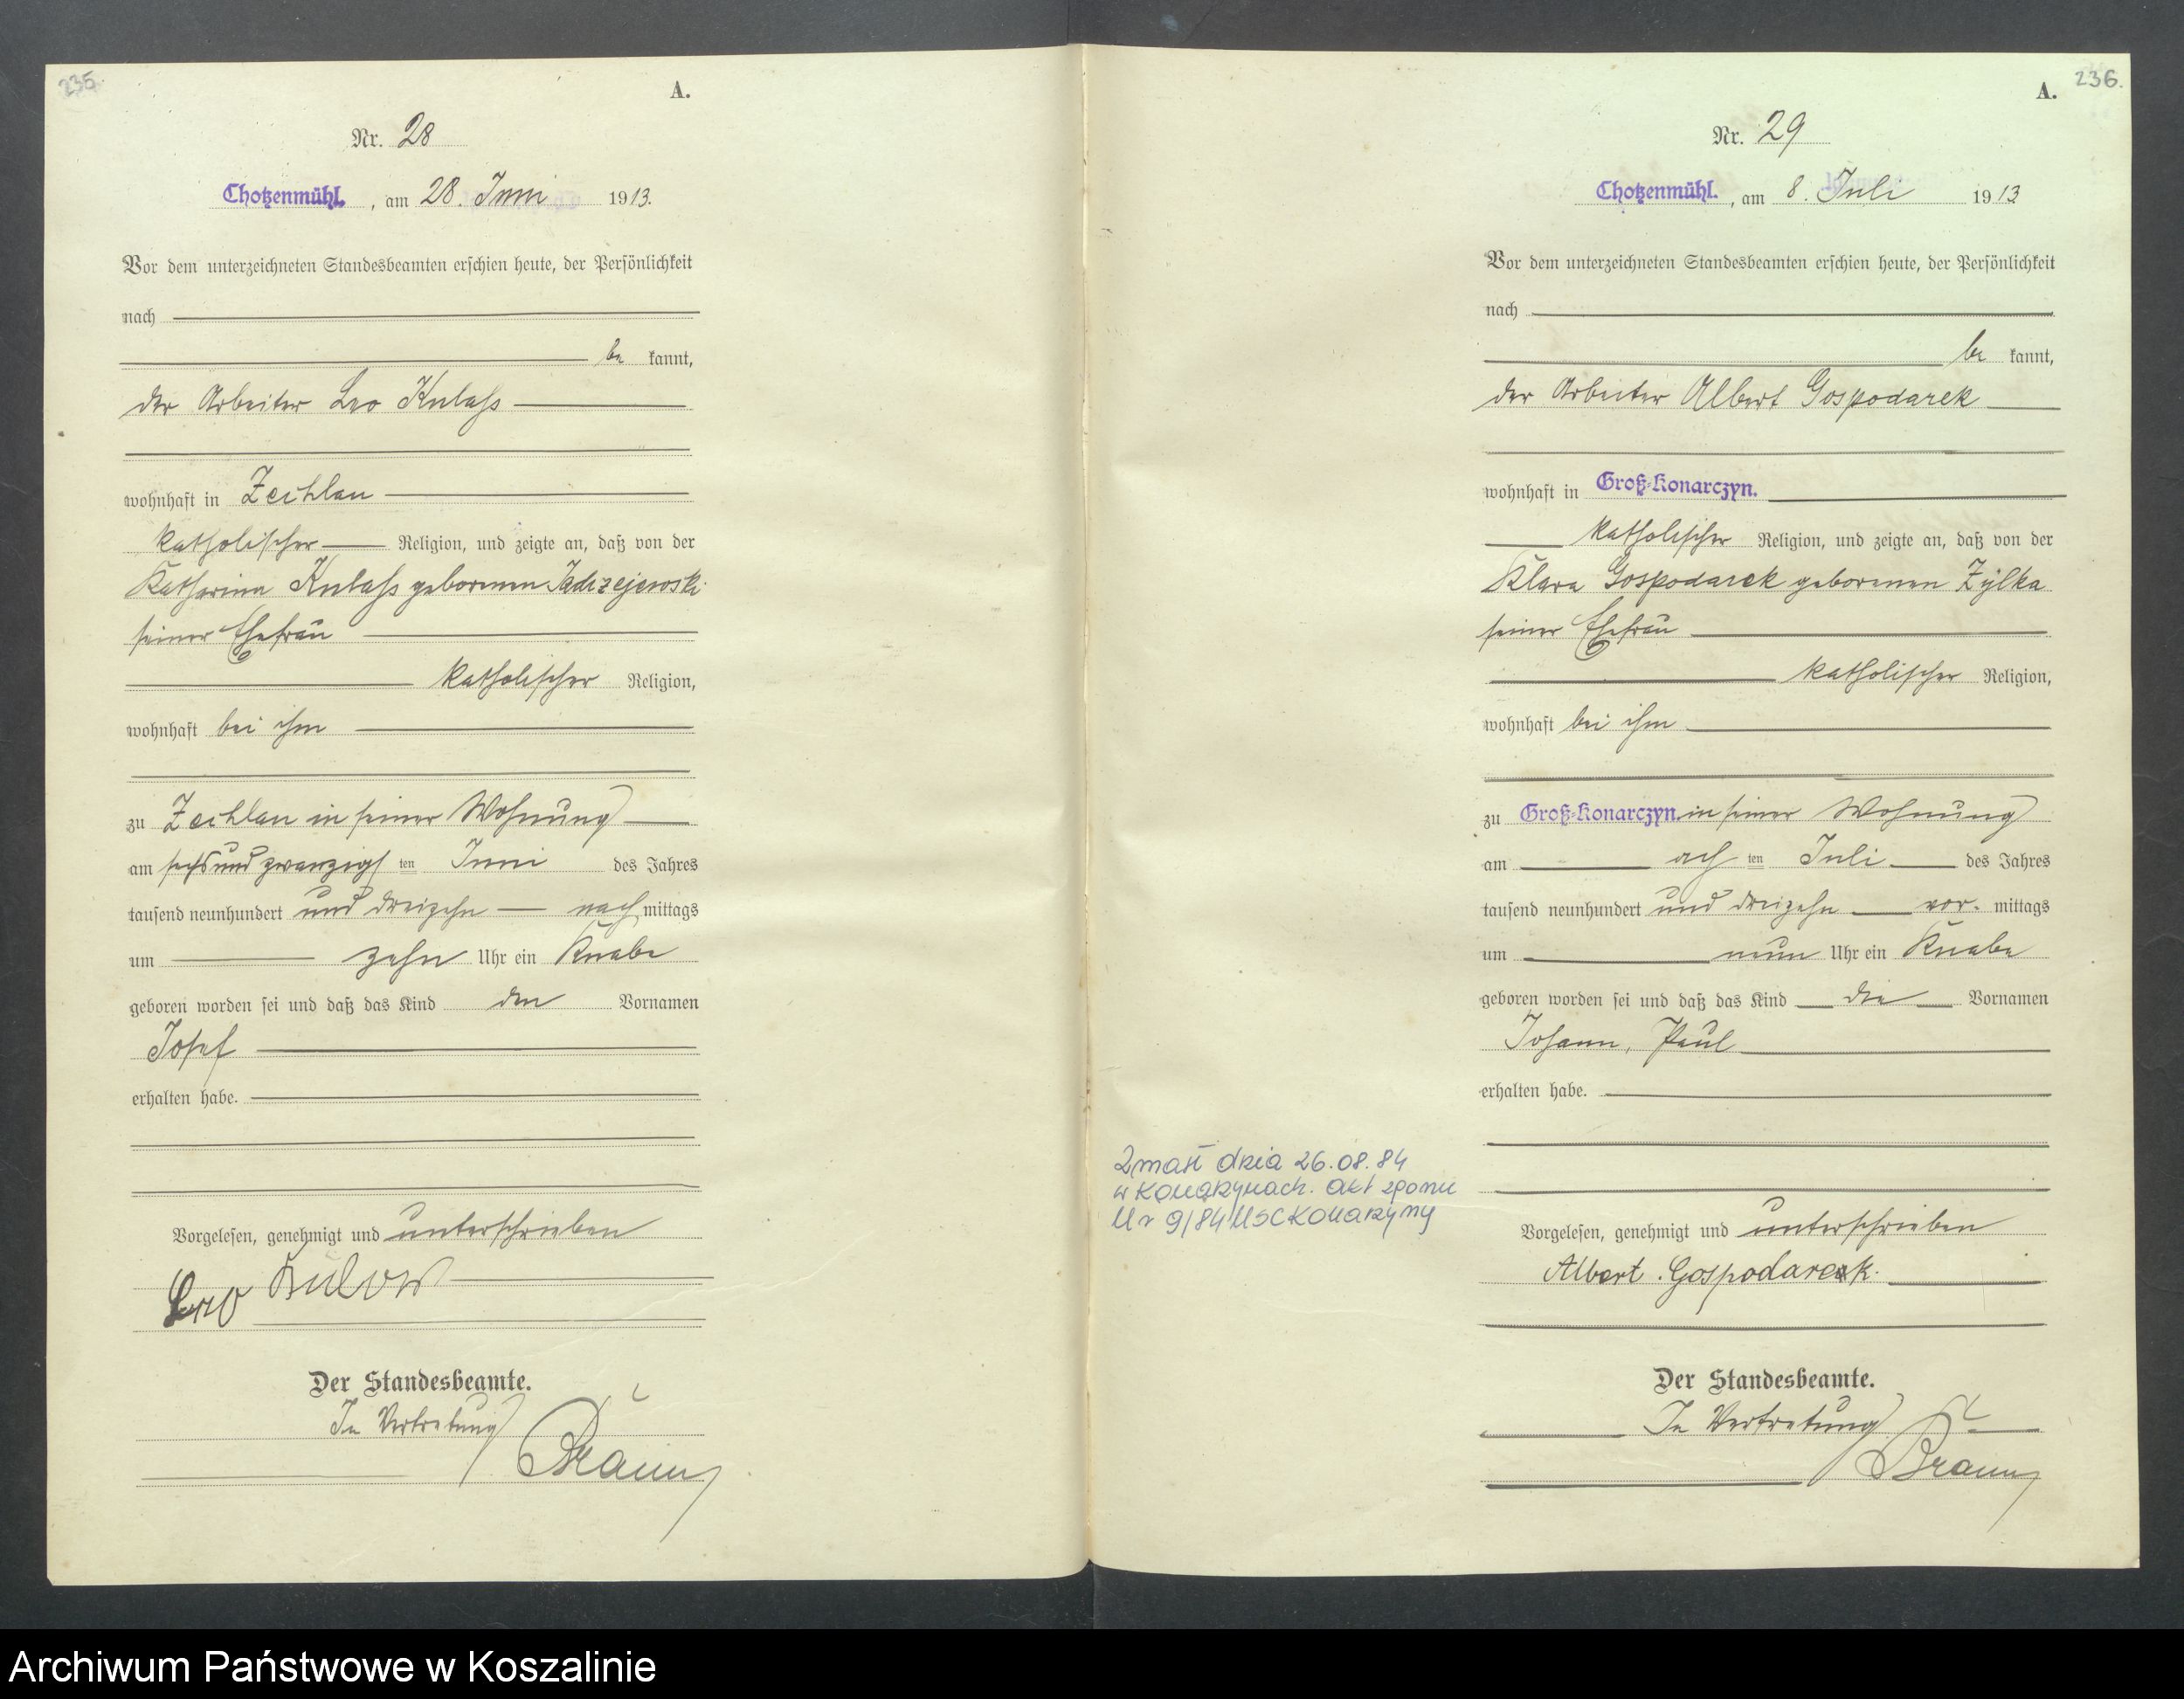 235.
A.
Nr. 28
Chotzenmühl. , am 28. Juni 1913.
Vor dem unterzeichneten Standesbeamten erschien heute, der Persönlichkeit
nach
be kannt,
der Arbeiter Leo Kulass
wohnhaft in Zechlau
katholischer Religion, und zeigte an, daß von der
Katharina Kulass geborenen Jadrzejewski
seiner Ehefrau
katholischer Religion,
wohnhaft bei ihm
zu Zechlau in seiner Wohnung
am sechsundzwanzigs ten Juni des Jahres
tausend neunhundert und dreizehn nach mittags
um zehn Uhr ein Knabe
geboren worden sei und daß das Kind den Vornamen
Josef
erhalten habe.
Vorgelesen, genehmigt und unterschrieben
Leo Kulow
Der Standesbeamte.
In Vertretung
Braun
236.
A.
Nr. 29
Chotzenmühl. , am 8. Juli 1913
Vor dem unterzeichneten Standesbeamten erschien heute, der Persönlichkeit
nach
be kannt,
der Arbeiter Albert Gospodarek
wohnhaft in Groß-Konarczyn.
katholischer Religion, und zeigte an, daß von der
Klara Gospodarek geborenen Zylka
seiner Ehefrau
katholischer Religion,
wohnhaft bei ihm
zu Groß-Konarczyn. in seiner Wohnung
am ach ten Juli des Jahres
tausend neunhundert und dreizehn vor. mittags
um neun Uhr ein Knabe
geboren worden sei und daß das Kind die Vornamen
Johann, Paul
erhalten habe.
Zmarł dnia 26.08.84
w Konarzynach. Akt zgonu
Nr 9/84 USC Konarzyny
Vorgelesen, genehmigt und unterschrieben
Albert Gospodarek.
Der Standesbeamte.
In Vertretung
Braun
Archiwum Państwowe w Koszalinie